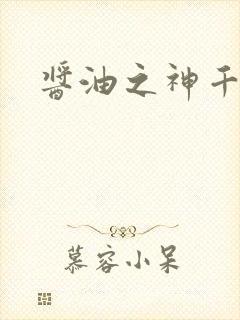 醬油之神千
慕容小呆